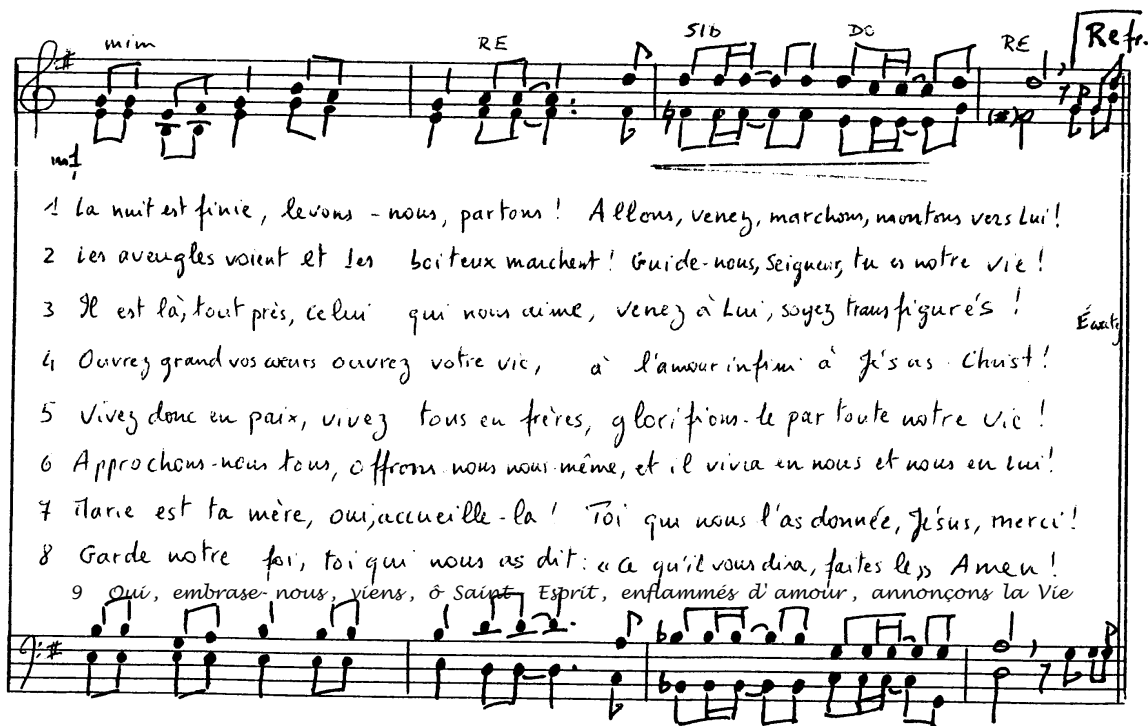 mim RE SIb DO RE Refr.
mf
1 La nuit est finie, levons-nous, partons ! Allons, venez, marchons, montons vers Lui !
2 Les aveugles voient et les boiteux marchent ! Guide-nous, Seigneur, tu es notre vie !
3 Il est là, tout près, celui qui nous aime, venez à Lui, soyez transfigurés !
4 Ouvrez grand vos cœurs ouvrez votre vie, à l'amour infini à Jésus Christ !
5 Vivez donc en paix, vivez tous en frères, glorifions-le par toute notre vie !
6 Approchons-nous tous, offrons nous nous-même, et il vivra en nous et nous en lui !
7 Marie est ta mère, oui, accueille-la ! Toi qui nous l'as donnée, Jésus, merci !
8 Garde notre foi, toi qui nous as dit : «Ce qu'il vous dira, faites le» Amen !
9 Oui, embrase-nous, viens, ô Saint Esprit, enflammés d'amour, annonçons la Vie